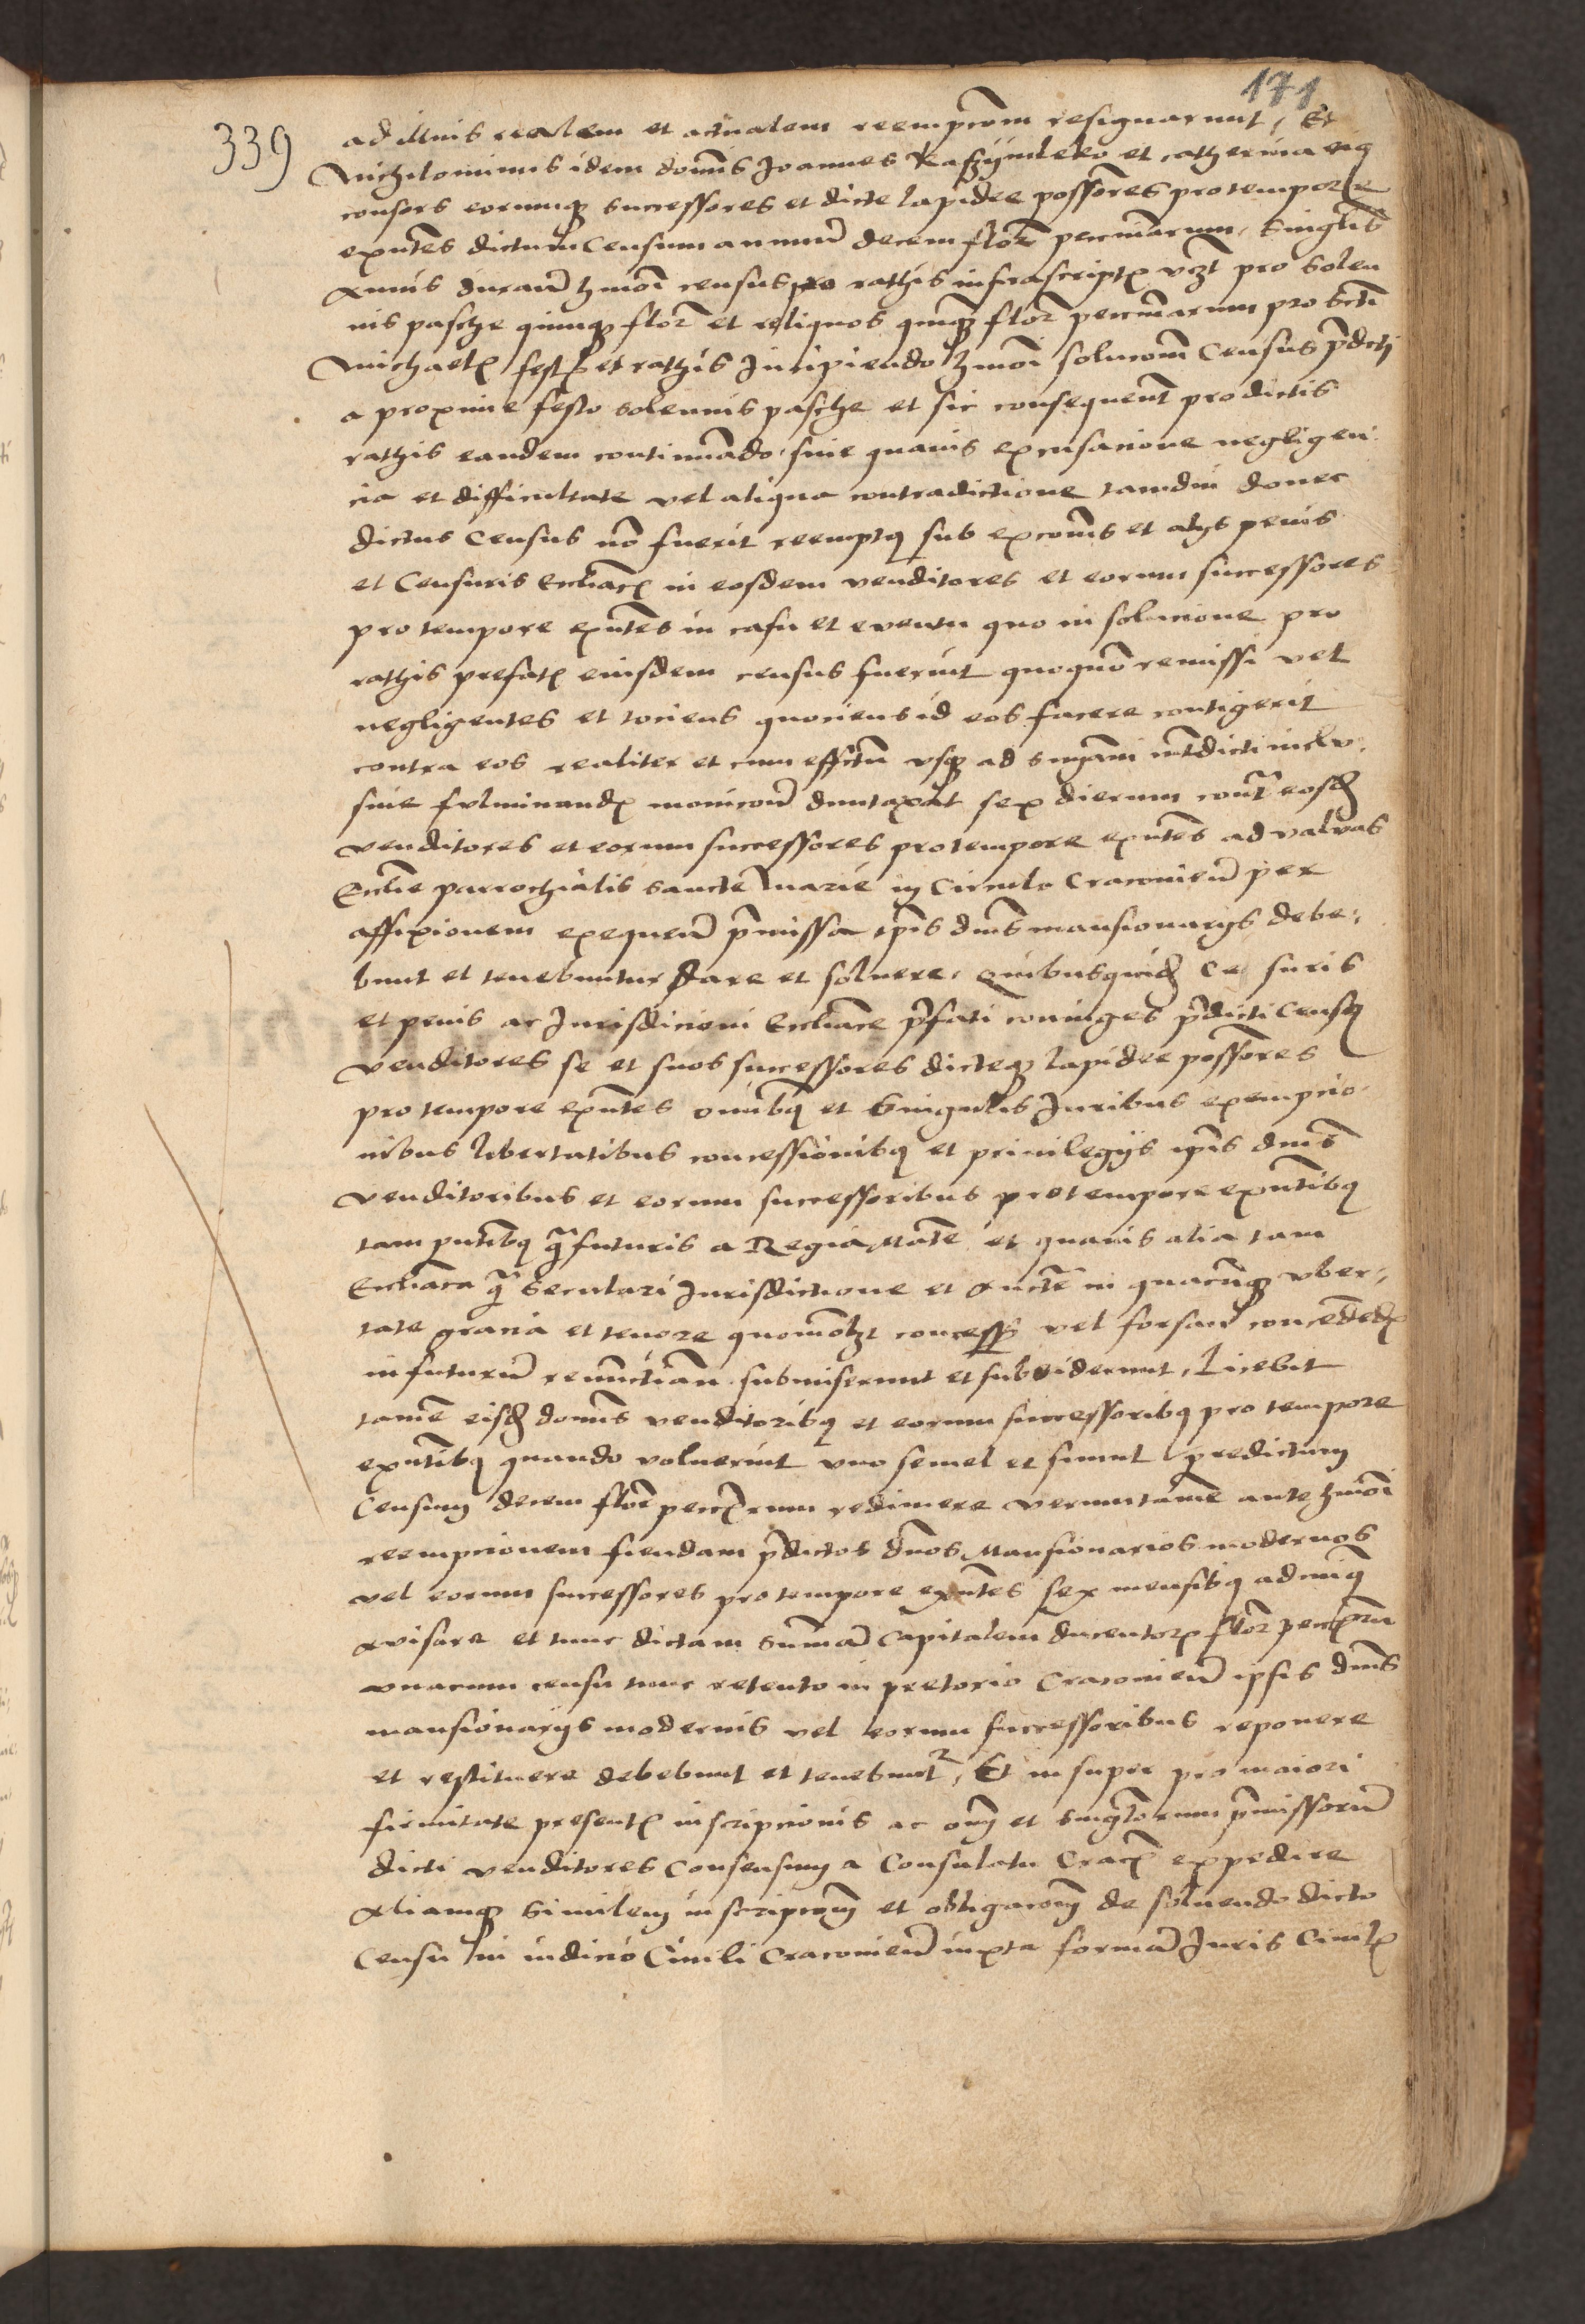 171
339
ad illius realem et actualem reempcōm resignarunt, Et
Nichilominus idem domīs Joannes et Catherina eiq
consors eorumq successores et dicte lapidee possōres pro tempore
exn̄tes dictum Censum annuū decem flor̄ pecūarum, Singl̄is
Annis durāu hmōi census pro rathis infrascriptꝭ vꝫt pro Solen
nis pasche quinqꝫ flor̄ et reliquos quinqꝫ flor̄ pecūarum pro Scti
Michaelꝭ festꝭ et rathis Incipiendo hmōi solucōm Census p̄dcti
a proxime festo solennis pasche et sic consequent̄ pro dictis
rathis eandem continuādo, sine quauis excusacione negligen
cia et difficultate vel aliqua contradictione tamdiu donec
dictus Census nō fuerit reemptꝰ sub excomīs et alijs penis
et Censuris Eccl̄iacꝭ in eosdem venditores et eorum successores
pro tempore exn̄tes in casu et eventu quo in solucione pro
rathis prefatꝭ eiusdem census fuerint quoquō remissi vel
negligentes et tociens quociens id eos facere contigerit
contra eos realiter et cum effectu vsqꝫ ad sngām int̄dicti inclu-
siue fulminandꝭ monicōe duntaxat sex dierum cont̄ eosd
venditores et eorum successores pro tempore exn̄tes ad valvas
Eccl̄ie parrochialis sancte Marie in Circulo Cracouien̄ per
affixionem exequen̄ p̄missa ip̄is dn̄is mansionarijs debe-
bunt et tenebuntur dare et soluere, Quibusquid Ce suris
et penis ac Jurisdicioni Eccl̄iace p̄fati coniuges p̄dicti Censꝰ
venditores se et suos successores dicteqꝫ lapidee possōres
pro tempore exn̄tes omībꝰ et Singulis Juribus exempcio-
nibus libertatibus concessionibꝰ et priuilegijs ip̄is dn̄is
venditoribus et eorum successoribus pro tempore exn̄tibꝰ
tam pn̄tibꝰ q̄ futuris a Regia Mate et quauis alia tam
Eccl̄iaca q̄ Seculari Jurisdictione et Aucte in quacūqꝫ vber-
tate gracia et tenore quomōlꝫt concess̄ vel forsan concēdedꝭ
in futurū submiserunt et Licebit
tamē eisd domīs venditoribꝰ et eorum successoribꝰ pro tempore
exn̄tibꝰ quando voluerint vno semel et simul predictum
Censum decem flor̄ redimere verumtamē ante hmōi
reempcionem fiendam p̄dictos dn̄os Mansionarios modernos
vel eorum successores pro tempore exn̄tes sex mensibꝰ ad minꝰ
Avisare et tunc dictam summā Capitalem ducentorꝫ flor̄
vnacum censu tunc retento in pretorio Cracouien̄ ipsis dn̄is
mansionarijs modernis vel eorum successoribus reponere
et restituere debebunt et tenebunt̄, Et insuper pro maiori
firmitate presentꝭ inscripcionis ac om̄ et singl̄orum p̄missorū
dicti venditores Consensum a Consulatu Cracꝭ expedire
Aliamqꝫ Similem inscripcōm et obligacōm de soluendo dicto
Censu in iudicio Ciuili Cracouien̄ iuxta formā Juris Ciuilꝭ